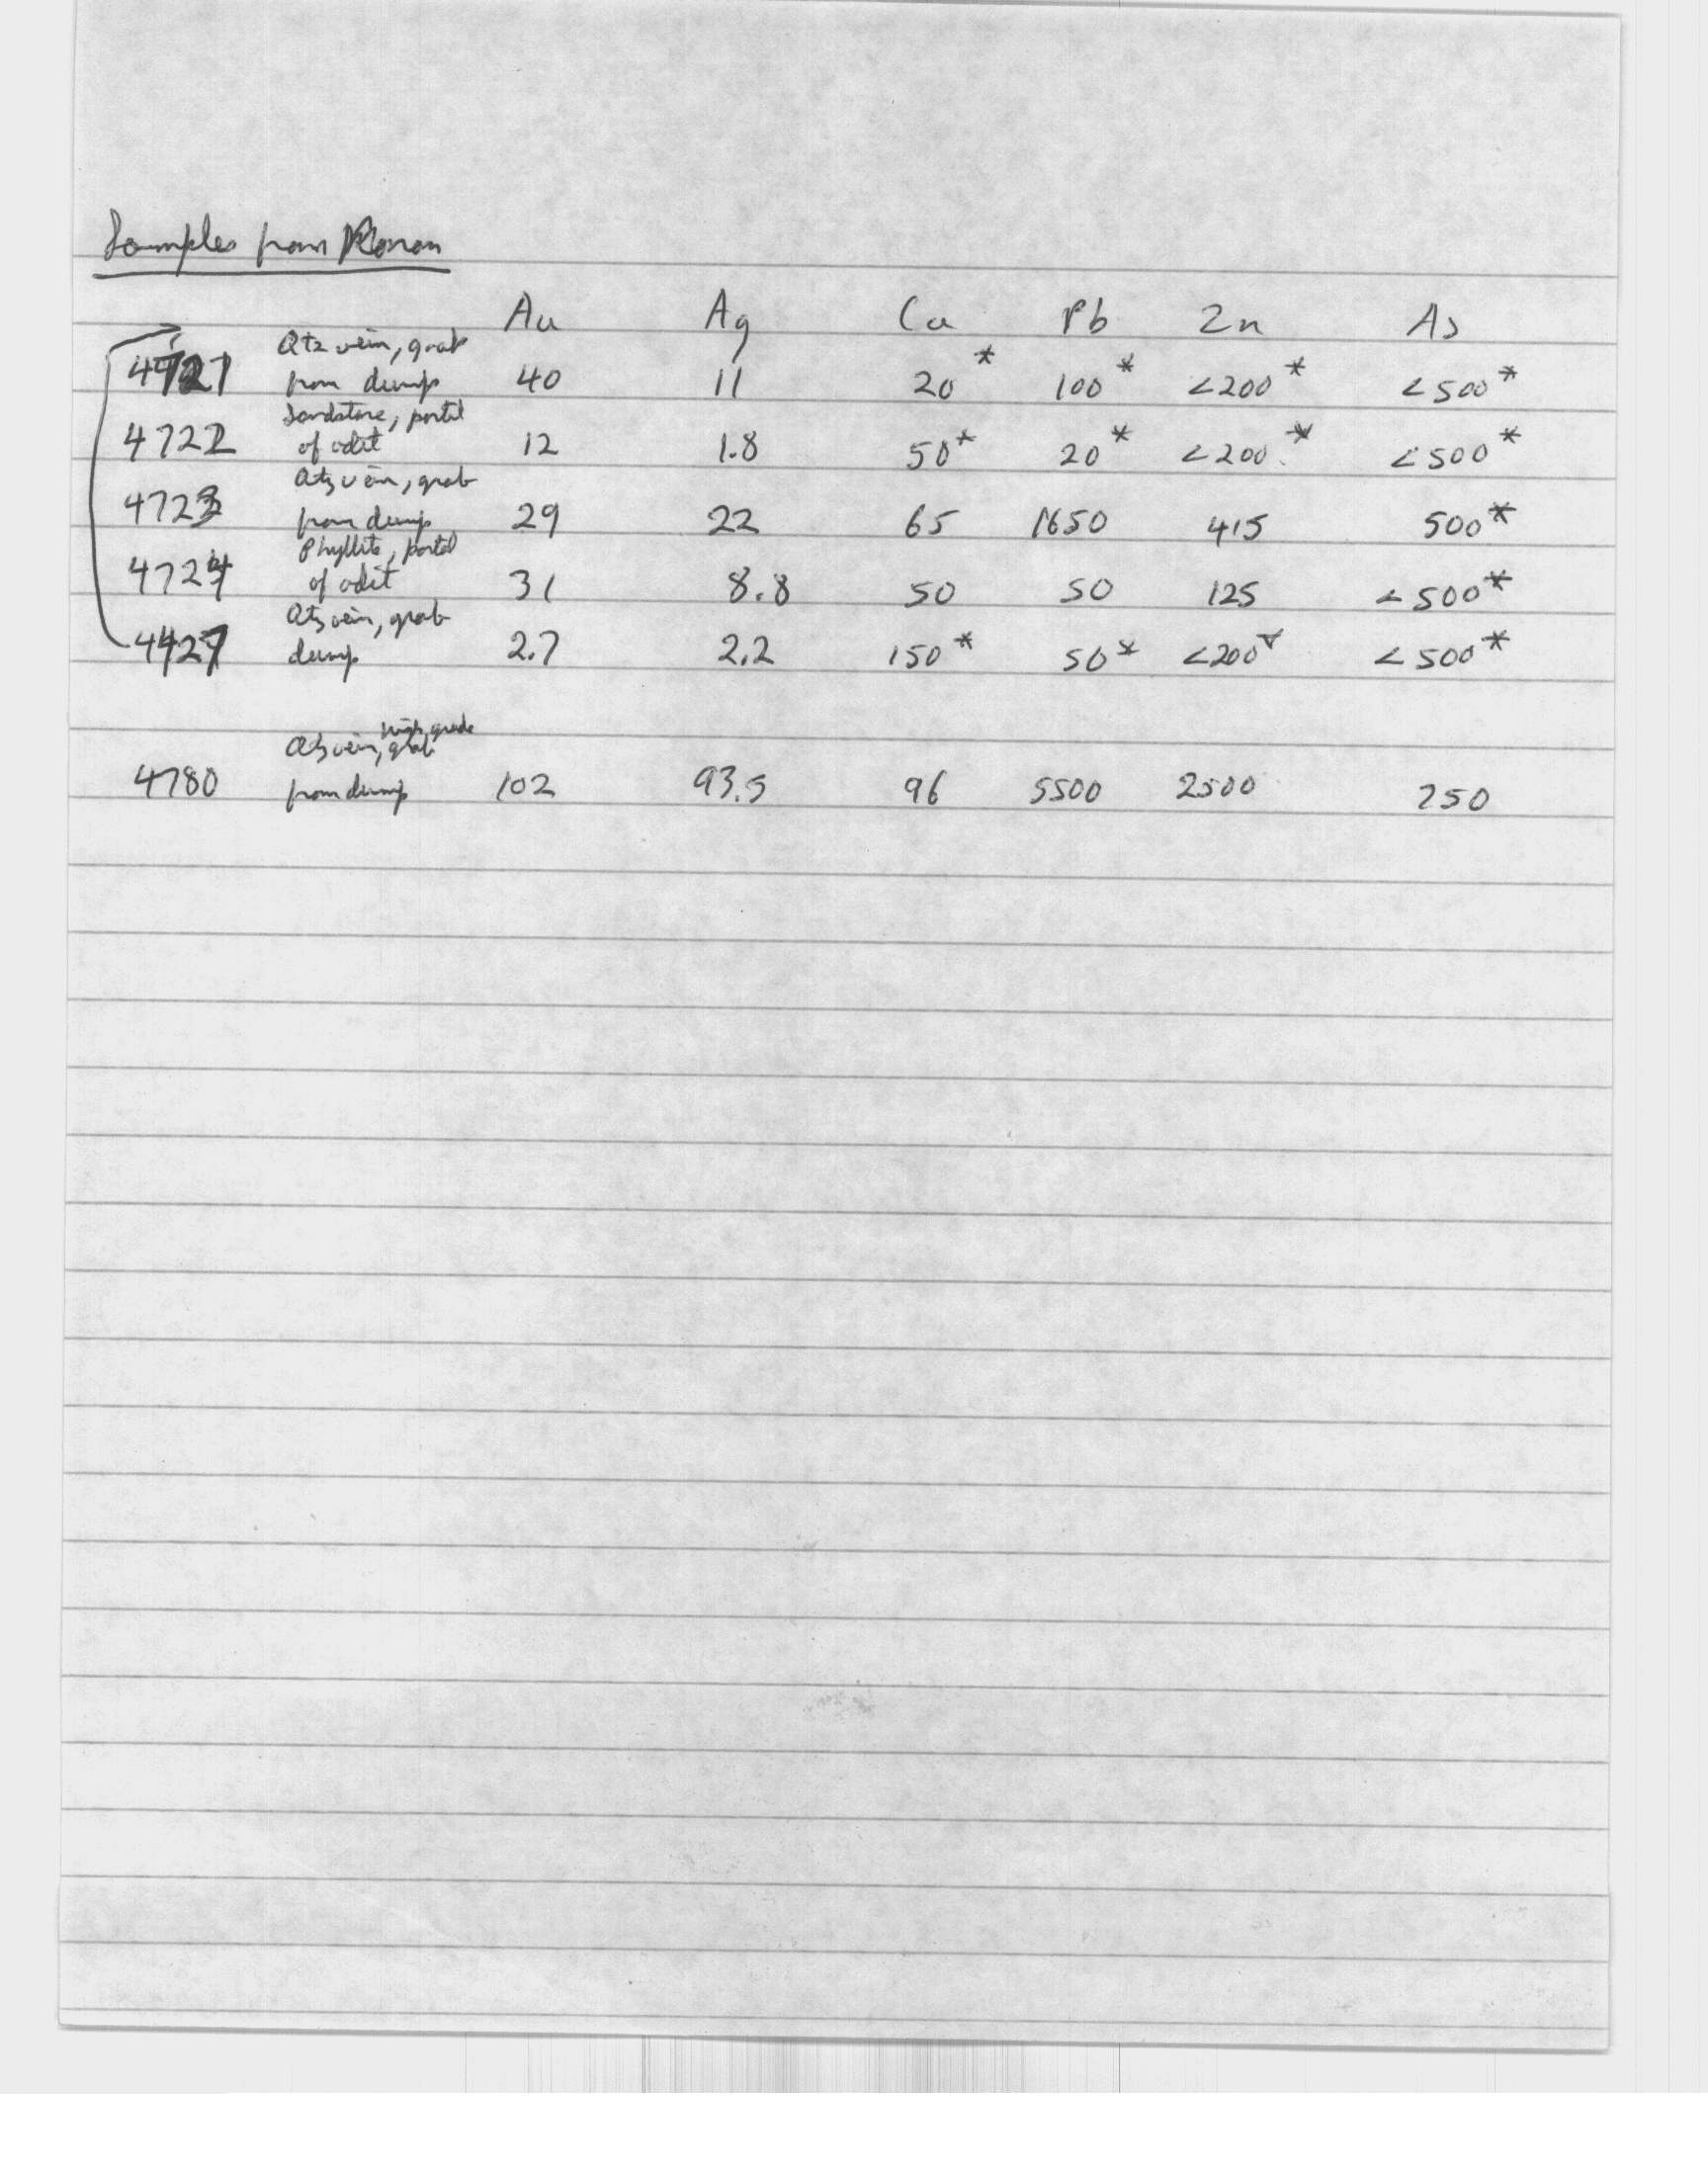 Samples from Ronan
Au Ag Cu Pb Zn As
Qtz vein, grab
4721 from dump 40 11 20* 100* <200* <500*
Sandstone, portal
4722 of adit 12 1.8 50* 20* <200* <500*
Qtz vein, grab
4723 from dump 29 22 65 1650 415 500*
Phyllite, portal
4724 of adit 31 8.8 50 50 125 <500*
Qtz vein, grab
4427 dump 2.7 2.2 150* 50* <200* <500*
high grade
Qtz vein, grab
4780 from dump 102 93.5 96 5500 2500 250